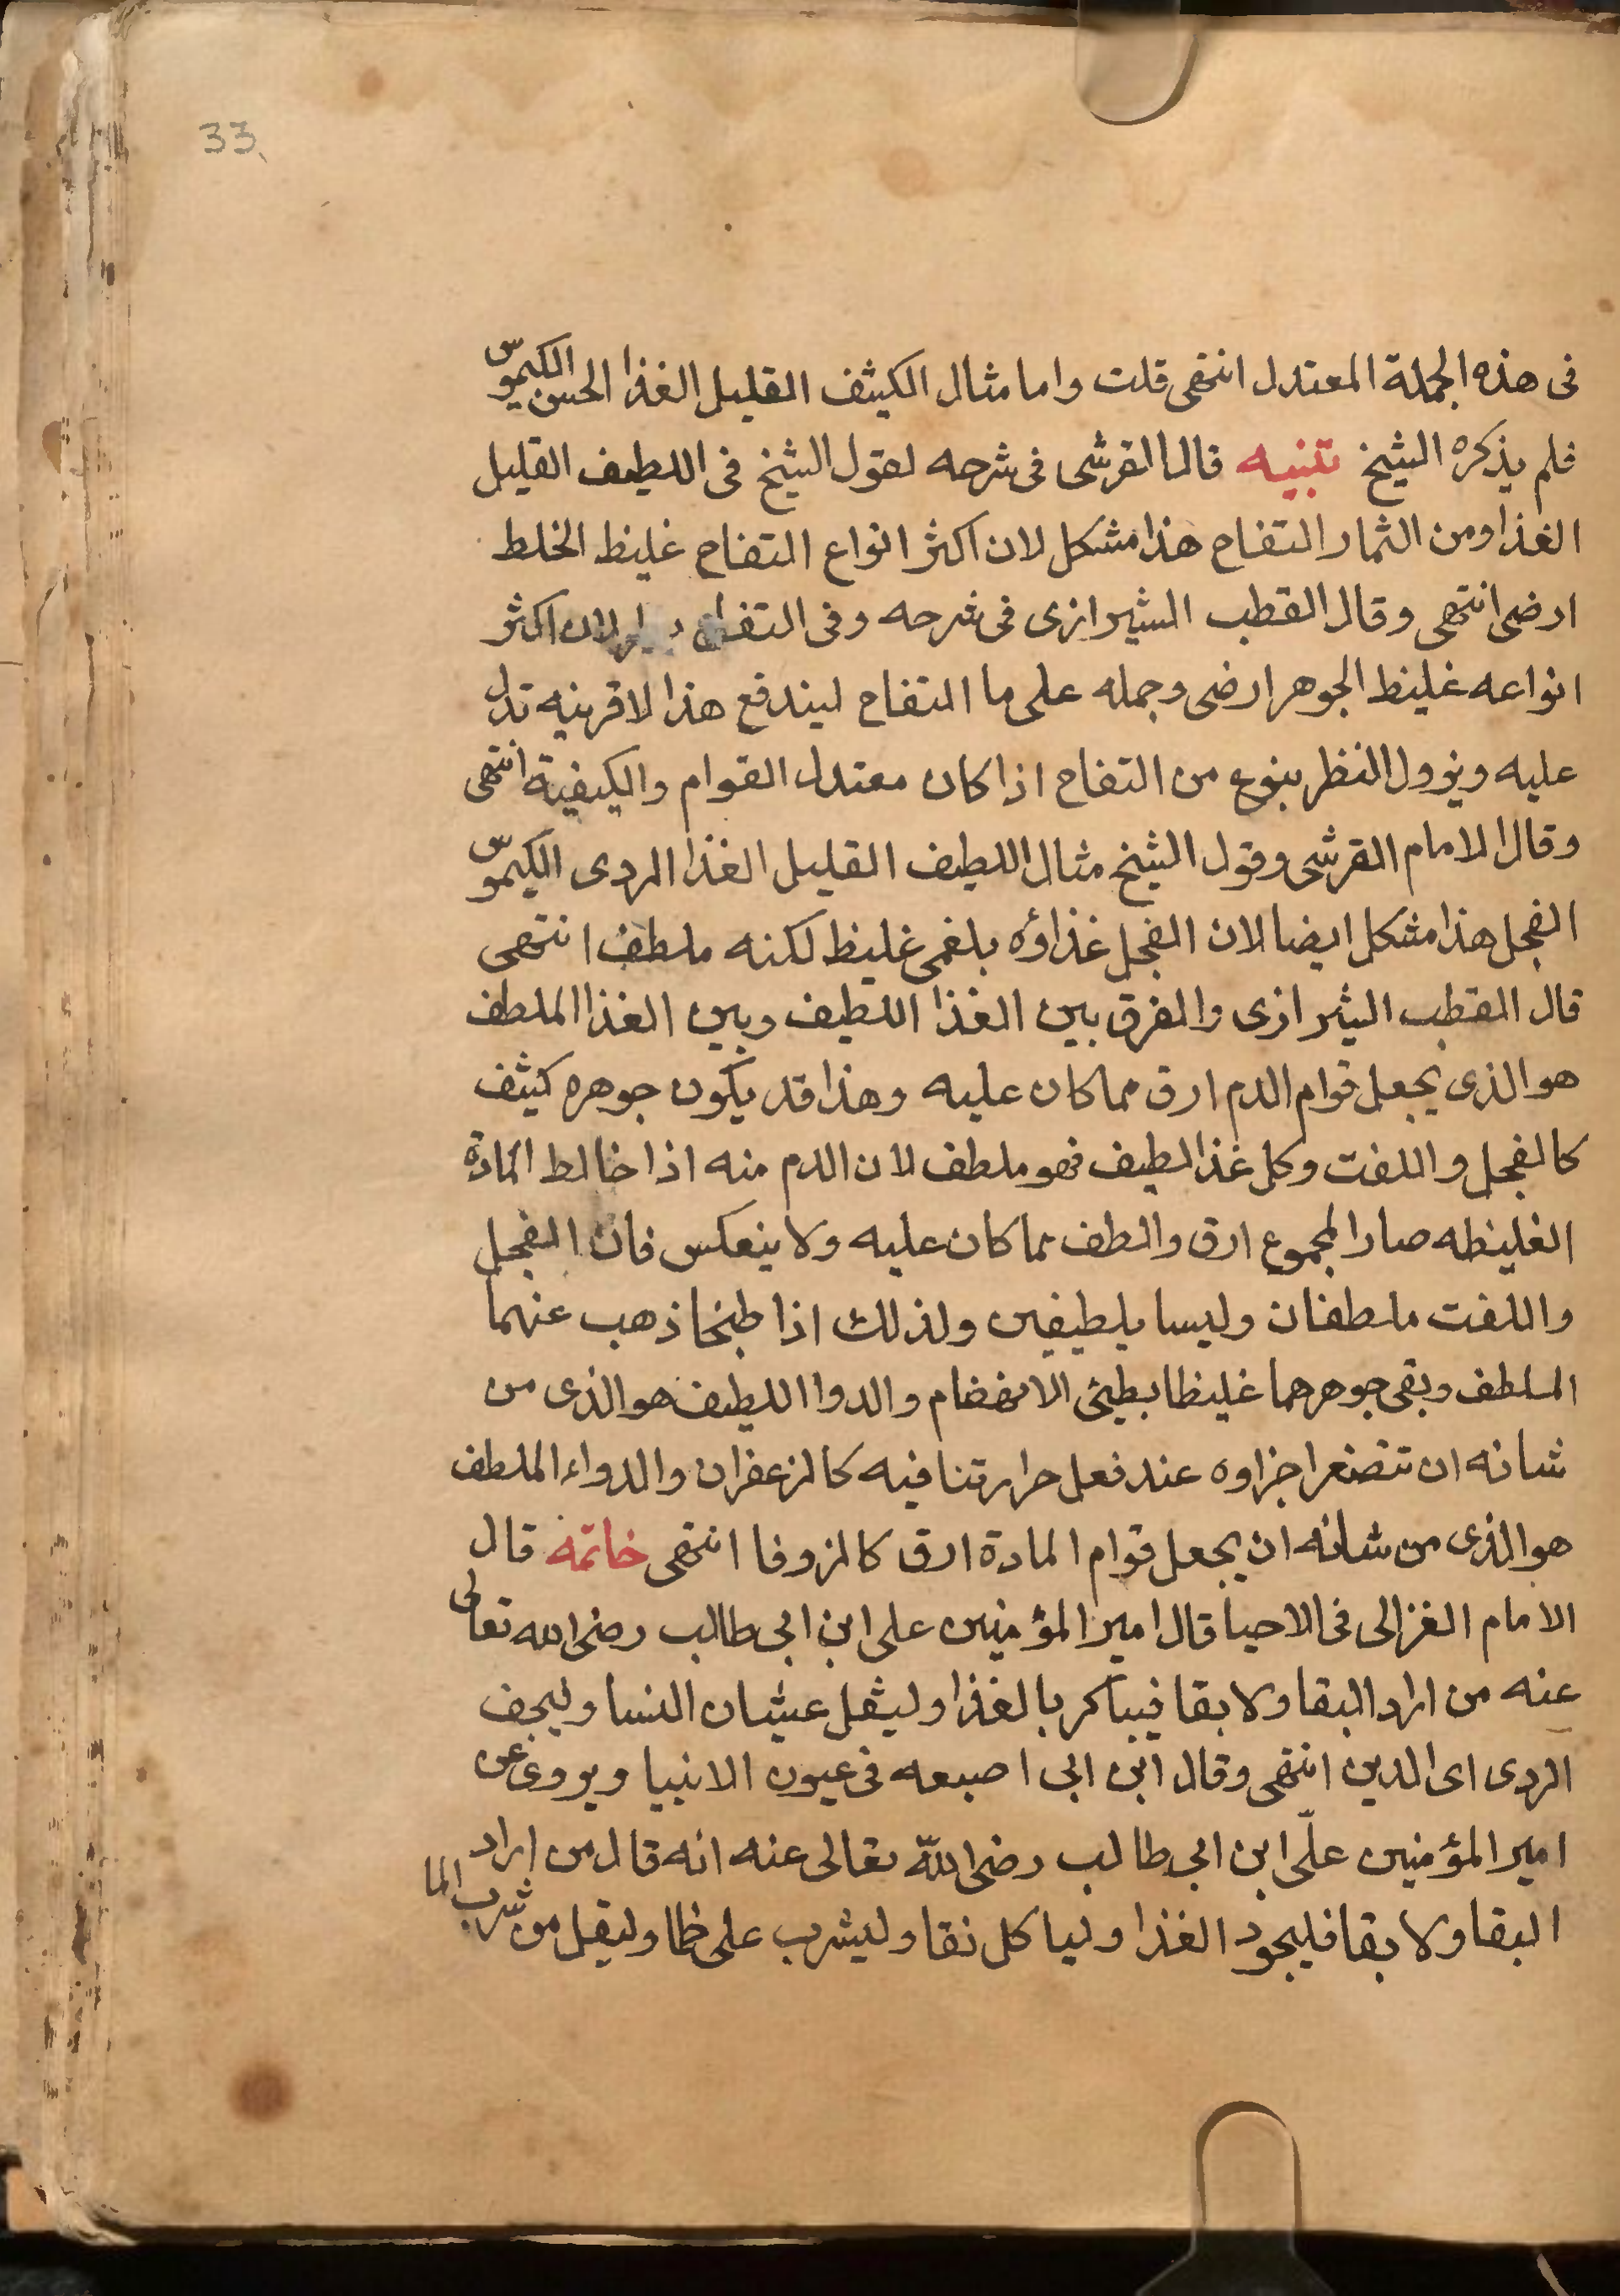 33
فى هذه الجملة المعتدل انتهى قلت واما مثال الكثيف القليل الغذا الحسن الكيموس
فلم يذكره الشيخ تنبيه قال القرشى فى شرحه لقول الشيخ فى اللطيف القليل
الغذا ومن الثمار التفاح هذا مشكل لان اكثر انواع التفاح غليظ الخلط
ارضى انتهى وقال القطب الشيرازى فى شرحه وفى التفاح لان اكثر
انواعه غليظ الجوهر ارضى وحمله على ما التفاح ليندفع هذا لا قرينه تدل
عليه ويزول النظر بنوع من التفاح اذا كان معتدل القوام والكيفية انتهى
وقال الامام القرشى وقول الشيخ مثال اللطيف القليل الغذا الردى الكيموس
الفجل هذا مشكل ايضا لان الفجل غذاؤه بلغمى غليظ لكنه ملطف انتهى
قال القطب الشيرازى والفرق بين الغذا اللطيف وبين الغذا الملطف
هو الذى يجعل قوام الدم ارق مما كان عليه وهذا قد يكون جوهره كثيف
كالفجل واللفت وكل غذا لطيف فهو ملطف لان الدم منه اذا خالط المادة
الغليظه صار المجموع ارق والطف مما كان عليه ولا ينعكس فان الفجل
واللفت ملطفان وليسا بلطيفين ولذلك اذا طبخا ذهب عنهما
الملطف وبقى جوهرهما غليظا بطيئ الانهضام والدوا اللطيف هو الذى من
شانه ان تتصغر اجزاوه عند فعل حرارتنا فيه كالزعفران والدواء الملطف
هو الذى من شانه ان يجعل قوام المادة ارق كالزوفا انتهى خاتمه قال
الامام الغزالى فى الاحيا قال امير المؤمنين على ابن ابى طالب رضى الله تعالى
عنه من اراد البقا ولا بقا فيباكر بالغذا وليقل غشيان النسا وليخف
الردى اى الدين انتهى وقال ابن ابى اصبعه فى عيون الانبيا ويروى عن
امير المؤمنين علّى ابن ابى طالب رضى اللّه تعالى عنه انه قال من اراد
البقا ولا بقا فليجود الغذا ولياكل نقا وليشرب على ظما وليقل من شرب الما